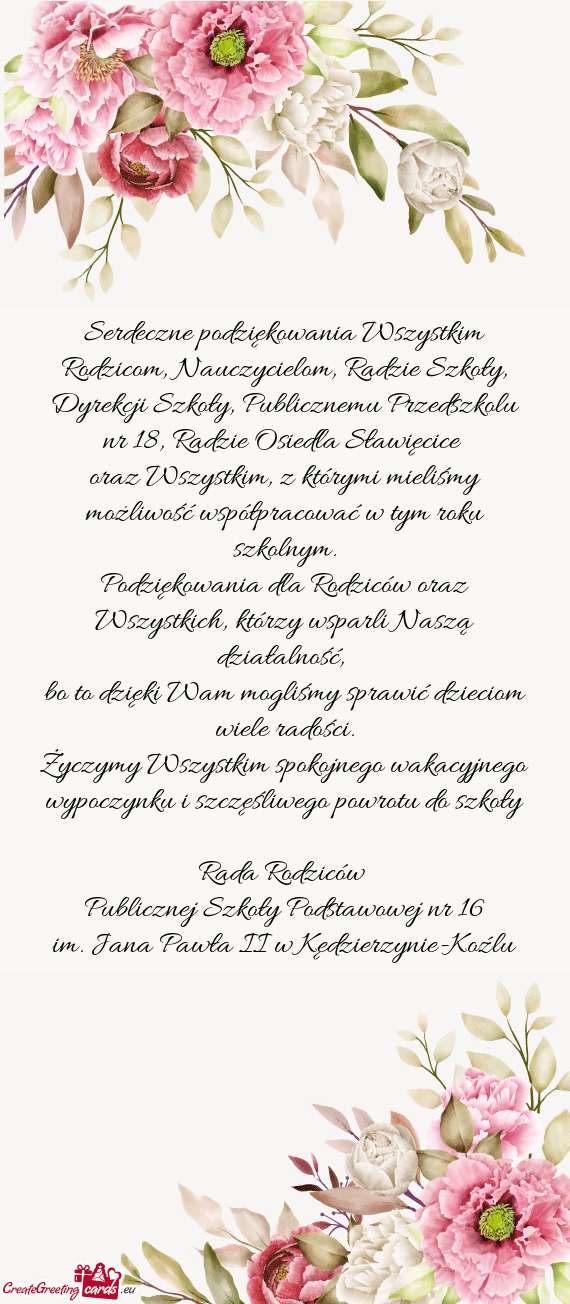 Serdeczne podziękowania Wszystkim
Rodzicom, Nauczycielom, Radzie Szkoły,
Dyrekcji Szkoły, Publicznemu Przedszkolu
nr 18, Radzie Osiedla Sławięcice
oraz Wszystkim, z którymi mieliśmy
możliwość współpracować w tym roku
szkolnym.
Podziękowania dla Rodziców oraz
Wszystkich, którzy wsparli Naszą
działalność,
bo to dzięki Wam mogliśmy sprawić dzieciom
wiele radości.
Życzymy Wszystkim spokojnego wakacyjnego
wypoczynku i szczęśliwego powrotu do szkoły
Rada Rodziców
Publicznej Szkoły Podstawowej nr 16
im. Jana Pawła II w Kędzierzynie-Koźlu
CreateGreeting cards .eu